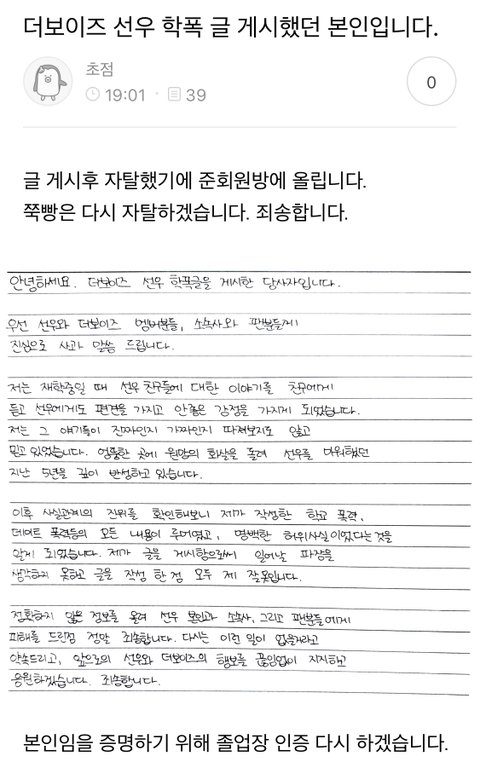 더보이즈 선우 학폭 글 게시했던 본인입니다.
초점
19:01
39
0
글 게시후 자탈했기에 준회원방에 올립니다.
쭉빵은 다시 자탈하겠습니다. 죄송합니다.
안녕하세요. 더보이즈 선우 학폭글을 게시한 당사자입니다.
우선 선우와 더보이즈 멤버분들, 소속사와 팬분들께
진심으로 사과 말씀 드립니다.
저는 재학중일 때 선우 친구들에 대한 이야기를 친구에게
듣고 선우에게도 편견을 가지고 안좋은 감정을 가지게 되었습니다.
저는 그 얘기들이 진짜인지 가짜인지 따져보지도 않고
믿고 있었습니다. 엉뚱한 곳에 원망의 화살을 돌려 선우를 미워했던
지난 5년을 깊이 반성하고 있습니다.
이후 사실관계의 진위를 확인해보니 제가 작성한 학교 폭력,
데이트 폭력등의 모든 내용이 루머였고, 명백한 허위사실이었다는것을
알게 되었습니다. 제가 글을 게시함으로써 일어날 파장을
생각하지 못하고 글을 작성한 점 모두 제 잘못입니다.
정확하지 않은 정보를 올려 선우 본인과 소속사, 그리고 팬분들에게
피해를 드린점 정말 죄송합니다. 다시는 이런 일이 없을거라고
약속드리고, 앞으로의 선우와 더보이즈의 행보를 끊임없이 지지하고
응원하겠습니다. 죄송합니다.
본인임을 증명하기 위해 졸업장 인증 다시 하겠습니다.